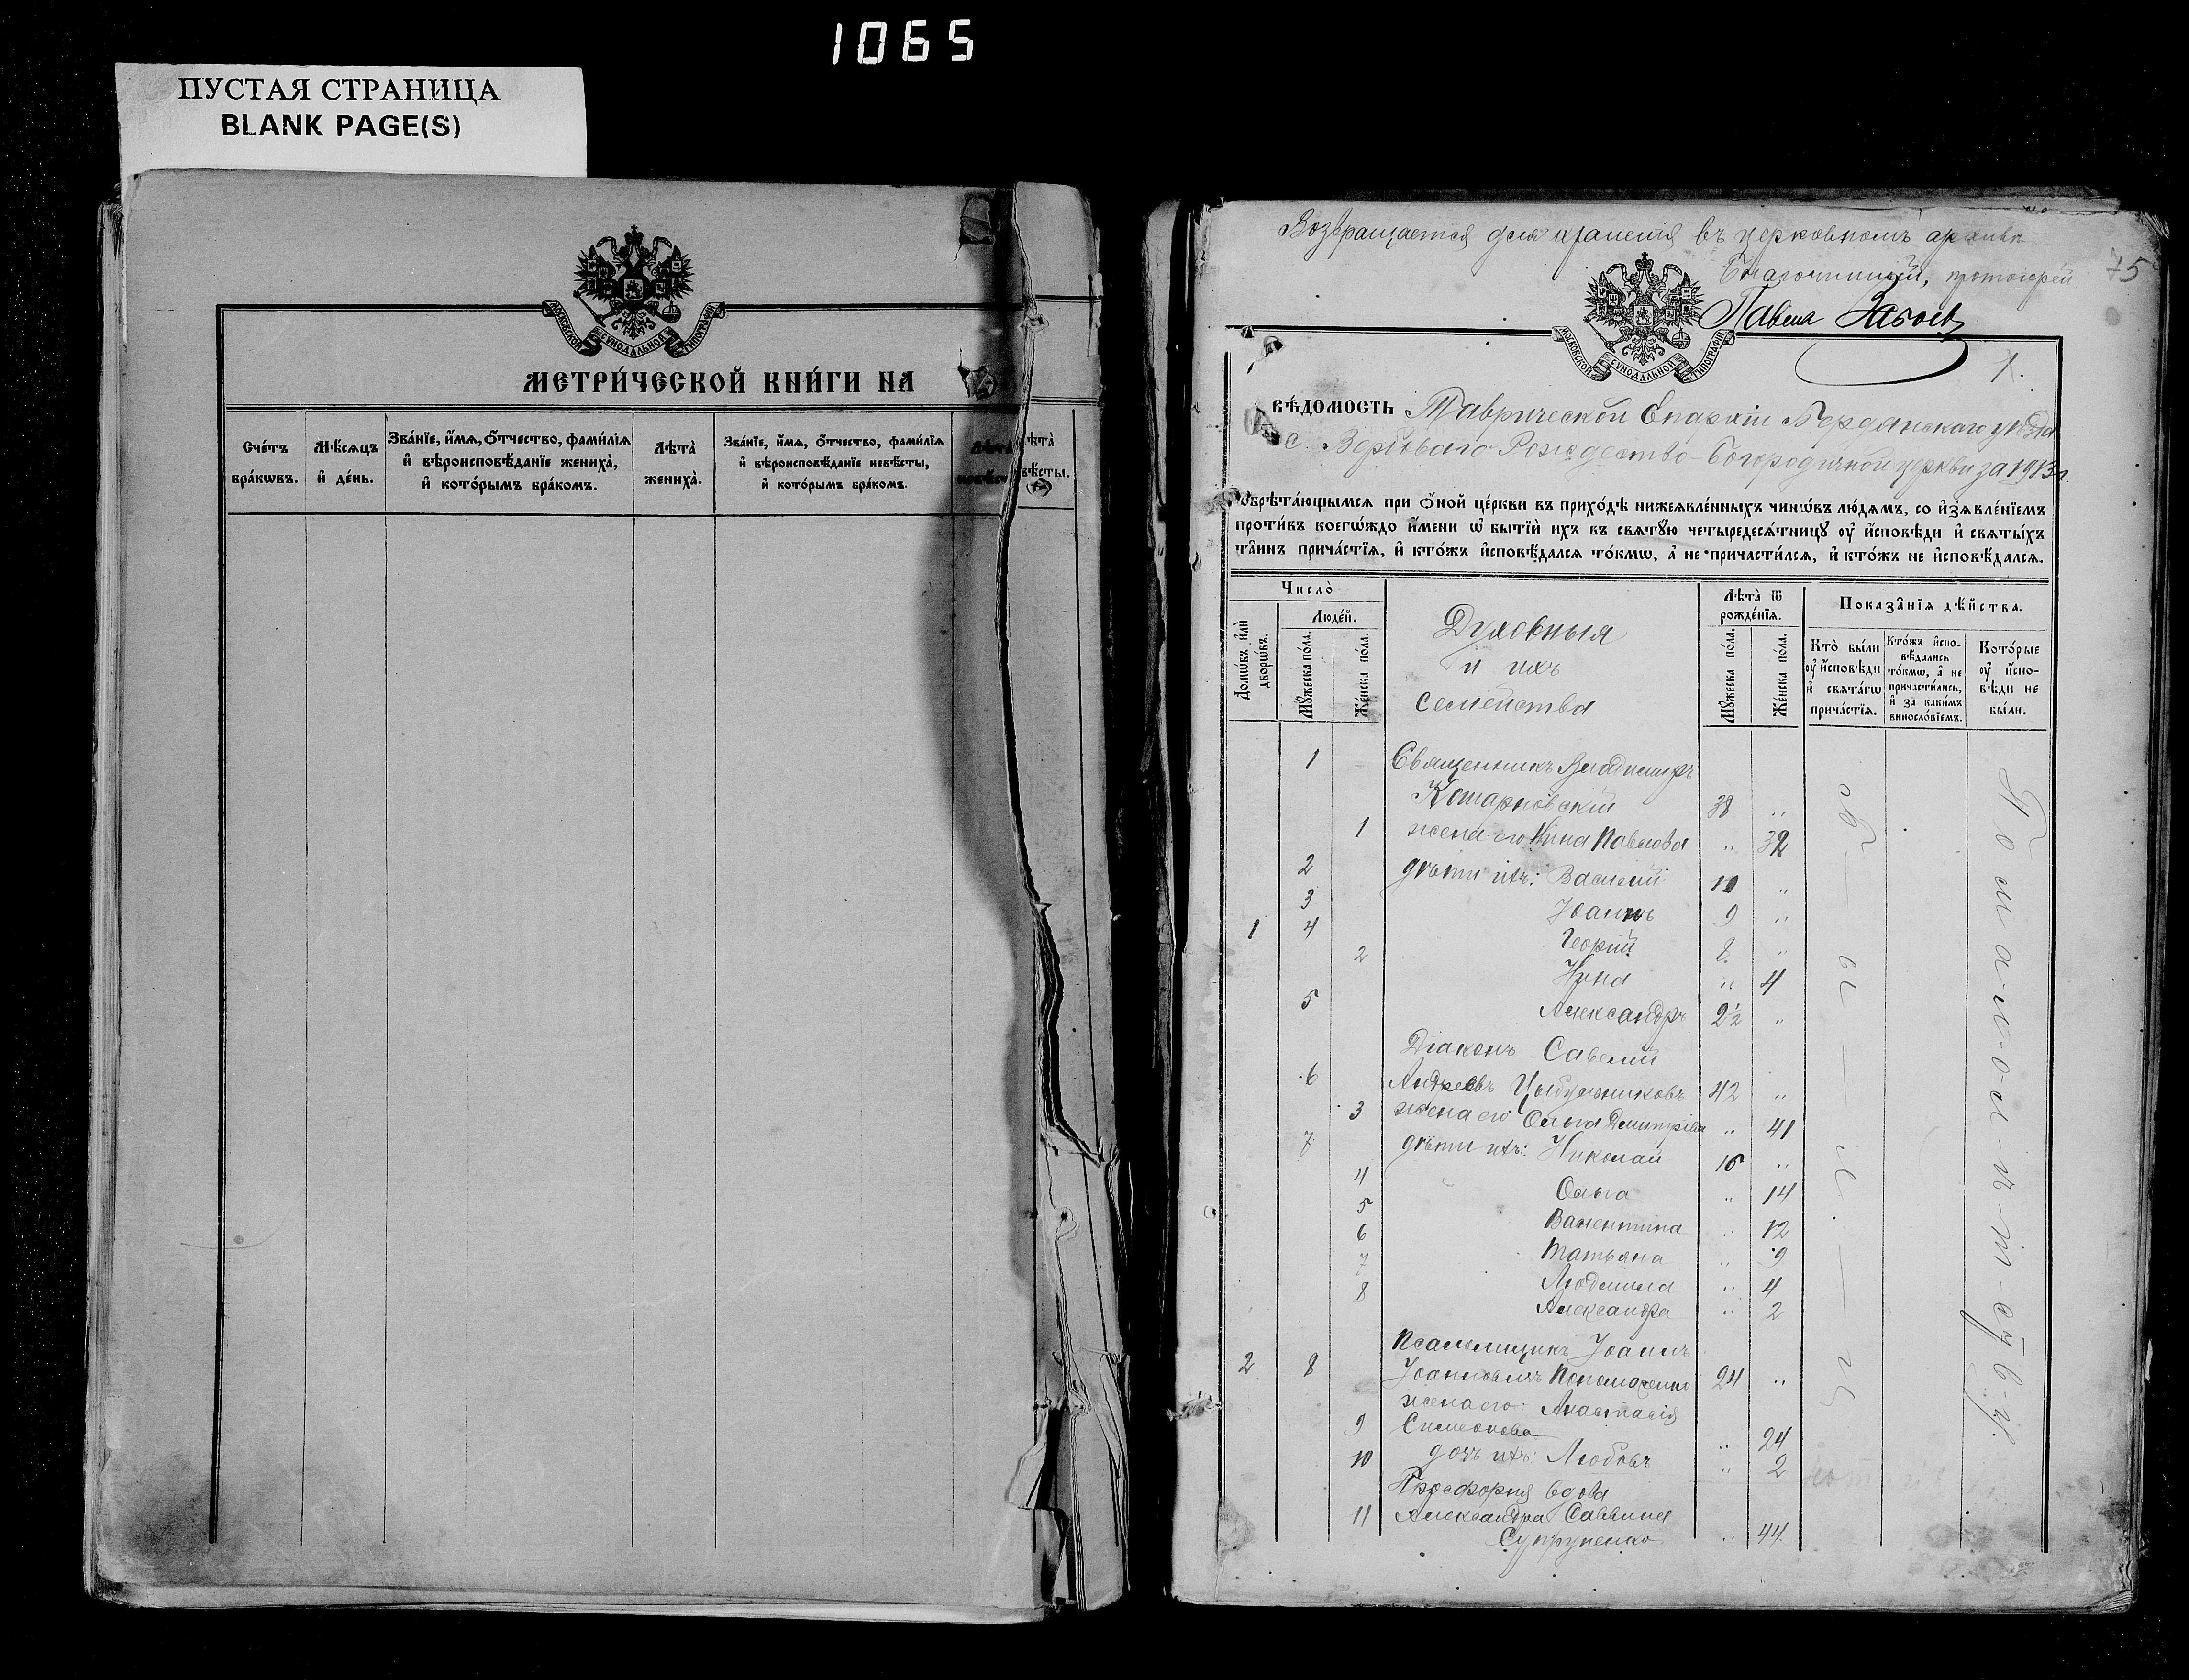 1065
ПУСТАЯ СТРАНИЦА
BLANK PAGE(S)
МОСКОВСКОЙ СѴНОДАЛЬНОЙ ТИПОГРАФІИ
МЕТРИ́ЧЕСКОЙ КНИ́ГИ НА
Сче́тъ бра́кѡвъ.
Мѣ́сяцъ и҆ де́нь.
Зва́нїе, и҆́мѧ, ѻ҆́тчество, фами́лїѧ и҆ вѣроисповѣ́данїе жениха̀, и҆ кото́рымъ бра́комъ.
Лѣ́та жениха̀.
Зва́нїе, и҆́мѧ, ѻ҆́тчество, фами́лїѧ и҆ вѣроисповѣ́данїе невѣ́сты, и҆ кото́рымъ бра́комъ.
Возвращается для храненія въ церковномъ архивѣ
Благочинный, протоіерей
75
Павелъ
МОСКОВСКОЙ СѴНОДАЛЬНОЙ ТИПОГРАФІИ
1.
ВѢ́ДОМОСТЬ Таврической Епархіи Бердянскаго уѣзда
с. Вербоваго Рождество-Богородичной церкви за 1913 г.
Ѡ҆брѣта́ющымсѧ при ѻ҆́ной це́ркви въ прихо́дѣ нижеѧвле́нныхъ чинѡ́въ лю́дѧмъ, со и҆з̾ѧвле́нїемъ
проти́въ коегѡ́ждо и҆́мени ѡ҆ бытїѝ и҆хъ въ свѧтꙋ́ю четыредесѧ́тницꙋ оу҆ и҆́сповѣди и҆ свѧты́хъ
та̑инъ прича́стїѧ, и҆ кто́жъ и҆сповѣ́далсѧ то́кмѡ, а҆ не причасти́лсѧ, и҆ кто́жъ не и҆сповѣ́далсѧ.
Число̀
Домѡ́въ и҆лѝ дворѡ́въ.
Люде́й.
Мꙋ́жеска по́ла.
Же́нска по́ла.
Духовныя
и ихъ
семейства
Лѣ́та ѿ рожде́нїѧ.
Мꙋ́жеска по́ла.
Же́нска по́ла.
Показа̑нїѧ дѣ́йства.
Кто̀ бы́ли оу҆ и҆́сповѣди и҆ свѧта́гѡ прича́стїѧ.
Кто́жъ и҆спо-вѣ́дались то́кмѡ, а҆ не причасти́лись, и҆ за каки́мъ виносло́вїемъ.
Кото́рые оу҆ и҆́спо-вѣди не бы́ли.
1 Священникъ Владиміръ
Котарновскій 38 "
1 жена его Нина Павлова " 32
2 дѣти ихъ: Василій 10 "
3 Іоаннъ 9 "
1 4 Георгій 8 "
2 Нина " 4
5 Александръ 2½ "
Діаконъ Савелій
6 Андреевъ 42 "
3 жена его Ольга Димитріева " 41
7 дѣти ихъ: Николай 15 "
4 Ольга " 14
5 Валентина " 12
6 Татьяна " 9
7 Людмила " 4
8 Александра " 2
Псаломщикъ Іоаннъ
2 8 Іоанновичъ Пономаренко 24 "
жена его: Анастасія
9 Симеонова " 24
10 дочь ихъ Любовь " 2
Просфорня вдова
11 Александра Саввина
Супруненко " 44